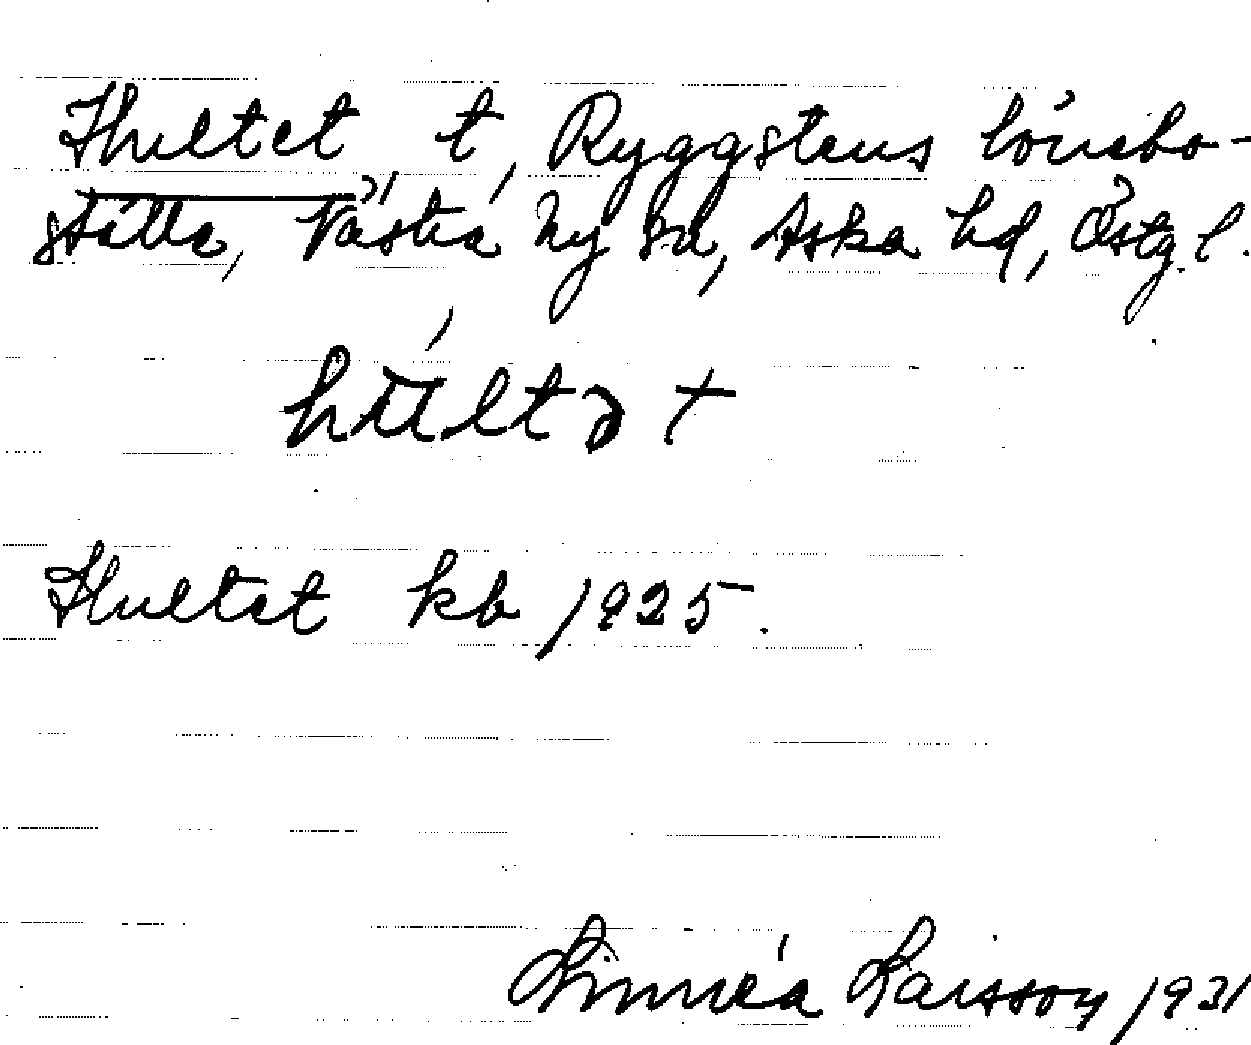 Hultet, t, Ryggstens lönebo-
ställe, Västra Ny sn, Aska hd, Östg. l.
húltət
Hultet kb 1925.
Linnéa Larsson 1931